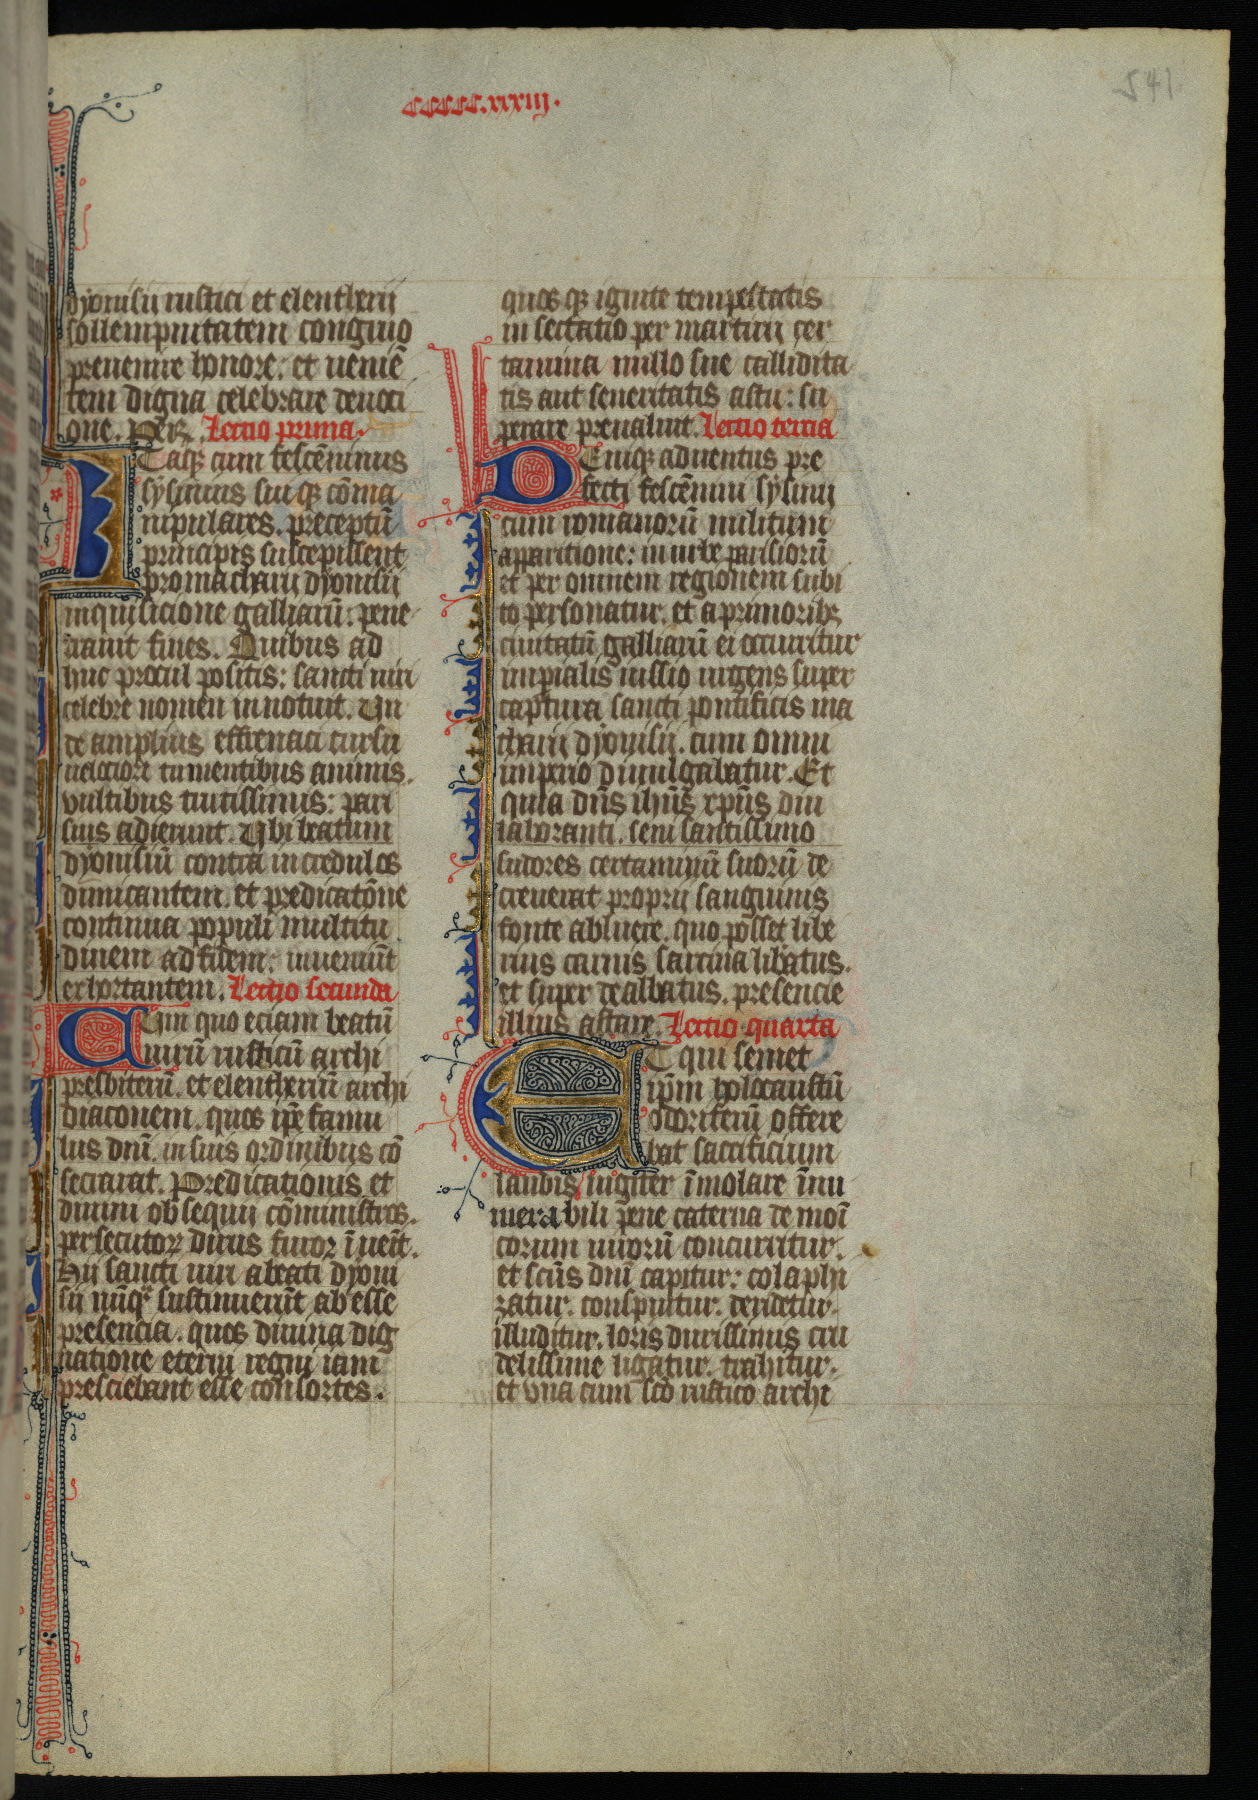 CCCCC.xxxiij.
541
dyonisij rustici et eleutherij
sollempnitatem congruo
preuenire honore: et ueniē
tem digna celebrare deuoti
one. Per. Lectio prima.
Itaq; cum fescēninus
sysinius siu q; cōma
nipulares. preceptū
principis suscepissent
pro macharij dyonisij
inquisicione galliarū: pene
trarūt fines. Quibus ad
huc procul positis: sancti uiri
celebre nomen innotuit. Un
de amplius effrenati cursu
uelociori tumentibus animis.
vultibus trucissimis: pari
sius adierunt. Vbi beatum
dyonisiū contra incredulos
dimicantem. et predicatōne
continua populi multitu
dinem ad fidem: inueniūt
exhortantem. Lectio secunda
Cum quo eciam beatū
uirū rusticū archi
presbiterū. et eleutheriū archi
diaconem. quos ip̄e famu
lus dn̄i. in suis ordinibus cō
secrarat. Predicationis et
diuini obsequij cōministros.
persecutorꝝ dirus furor īuenit.
Hij sancti uiri a beati dyoni
sij nūq̄ sustinuerūt ab esse
presencia. quos diuina dig
natione eterni regni iam
presciebant esse consortes.
quos q; ignite tempestatis
in sectatio per martirij cer
tamina nullo sue callidita
tis aut seueritatis astu: su
perare preualuit. Lectio tercia
Deniq; aduentus pre
fecti fescēnini sysinij
cum romanorū militum
apparitione: in urbe parisiorū
et per omnem regionem subi
to personatur. et a primorib;
ciuitatū galliarū ei occurritur
imperialis iussio urgens super
captura sancti pontificis ma
charij dyonisij. cum omni
imperio diuulgabatur. Et
quia dn̄s ihūs xp̄us diu
laboranti. seni sanctissimo
sudores certaminū suorū de
creuerat proprij sanguinis
fonte abluere. quo posset libe
rius carnis sarcina libatus.
et super dealbatus. presencie
illius astare. Lectio quarta
Et qui semet
ip̄m holocaustū
odoriferū offere
bat sacrificium
laudis iugiter īmolare īnu
merabili pene caterua demoī
corum uirorū concurritur.
et scūs dn̄i capitur: colaphi
zatur. conspuitur. deridetur.
illuditur. loris durissimis cru
delissime ligatur. trahitur.
et vna cum sc̄o rustico archi